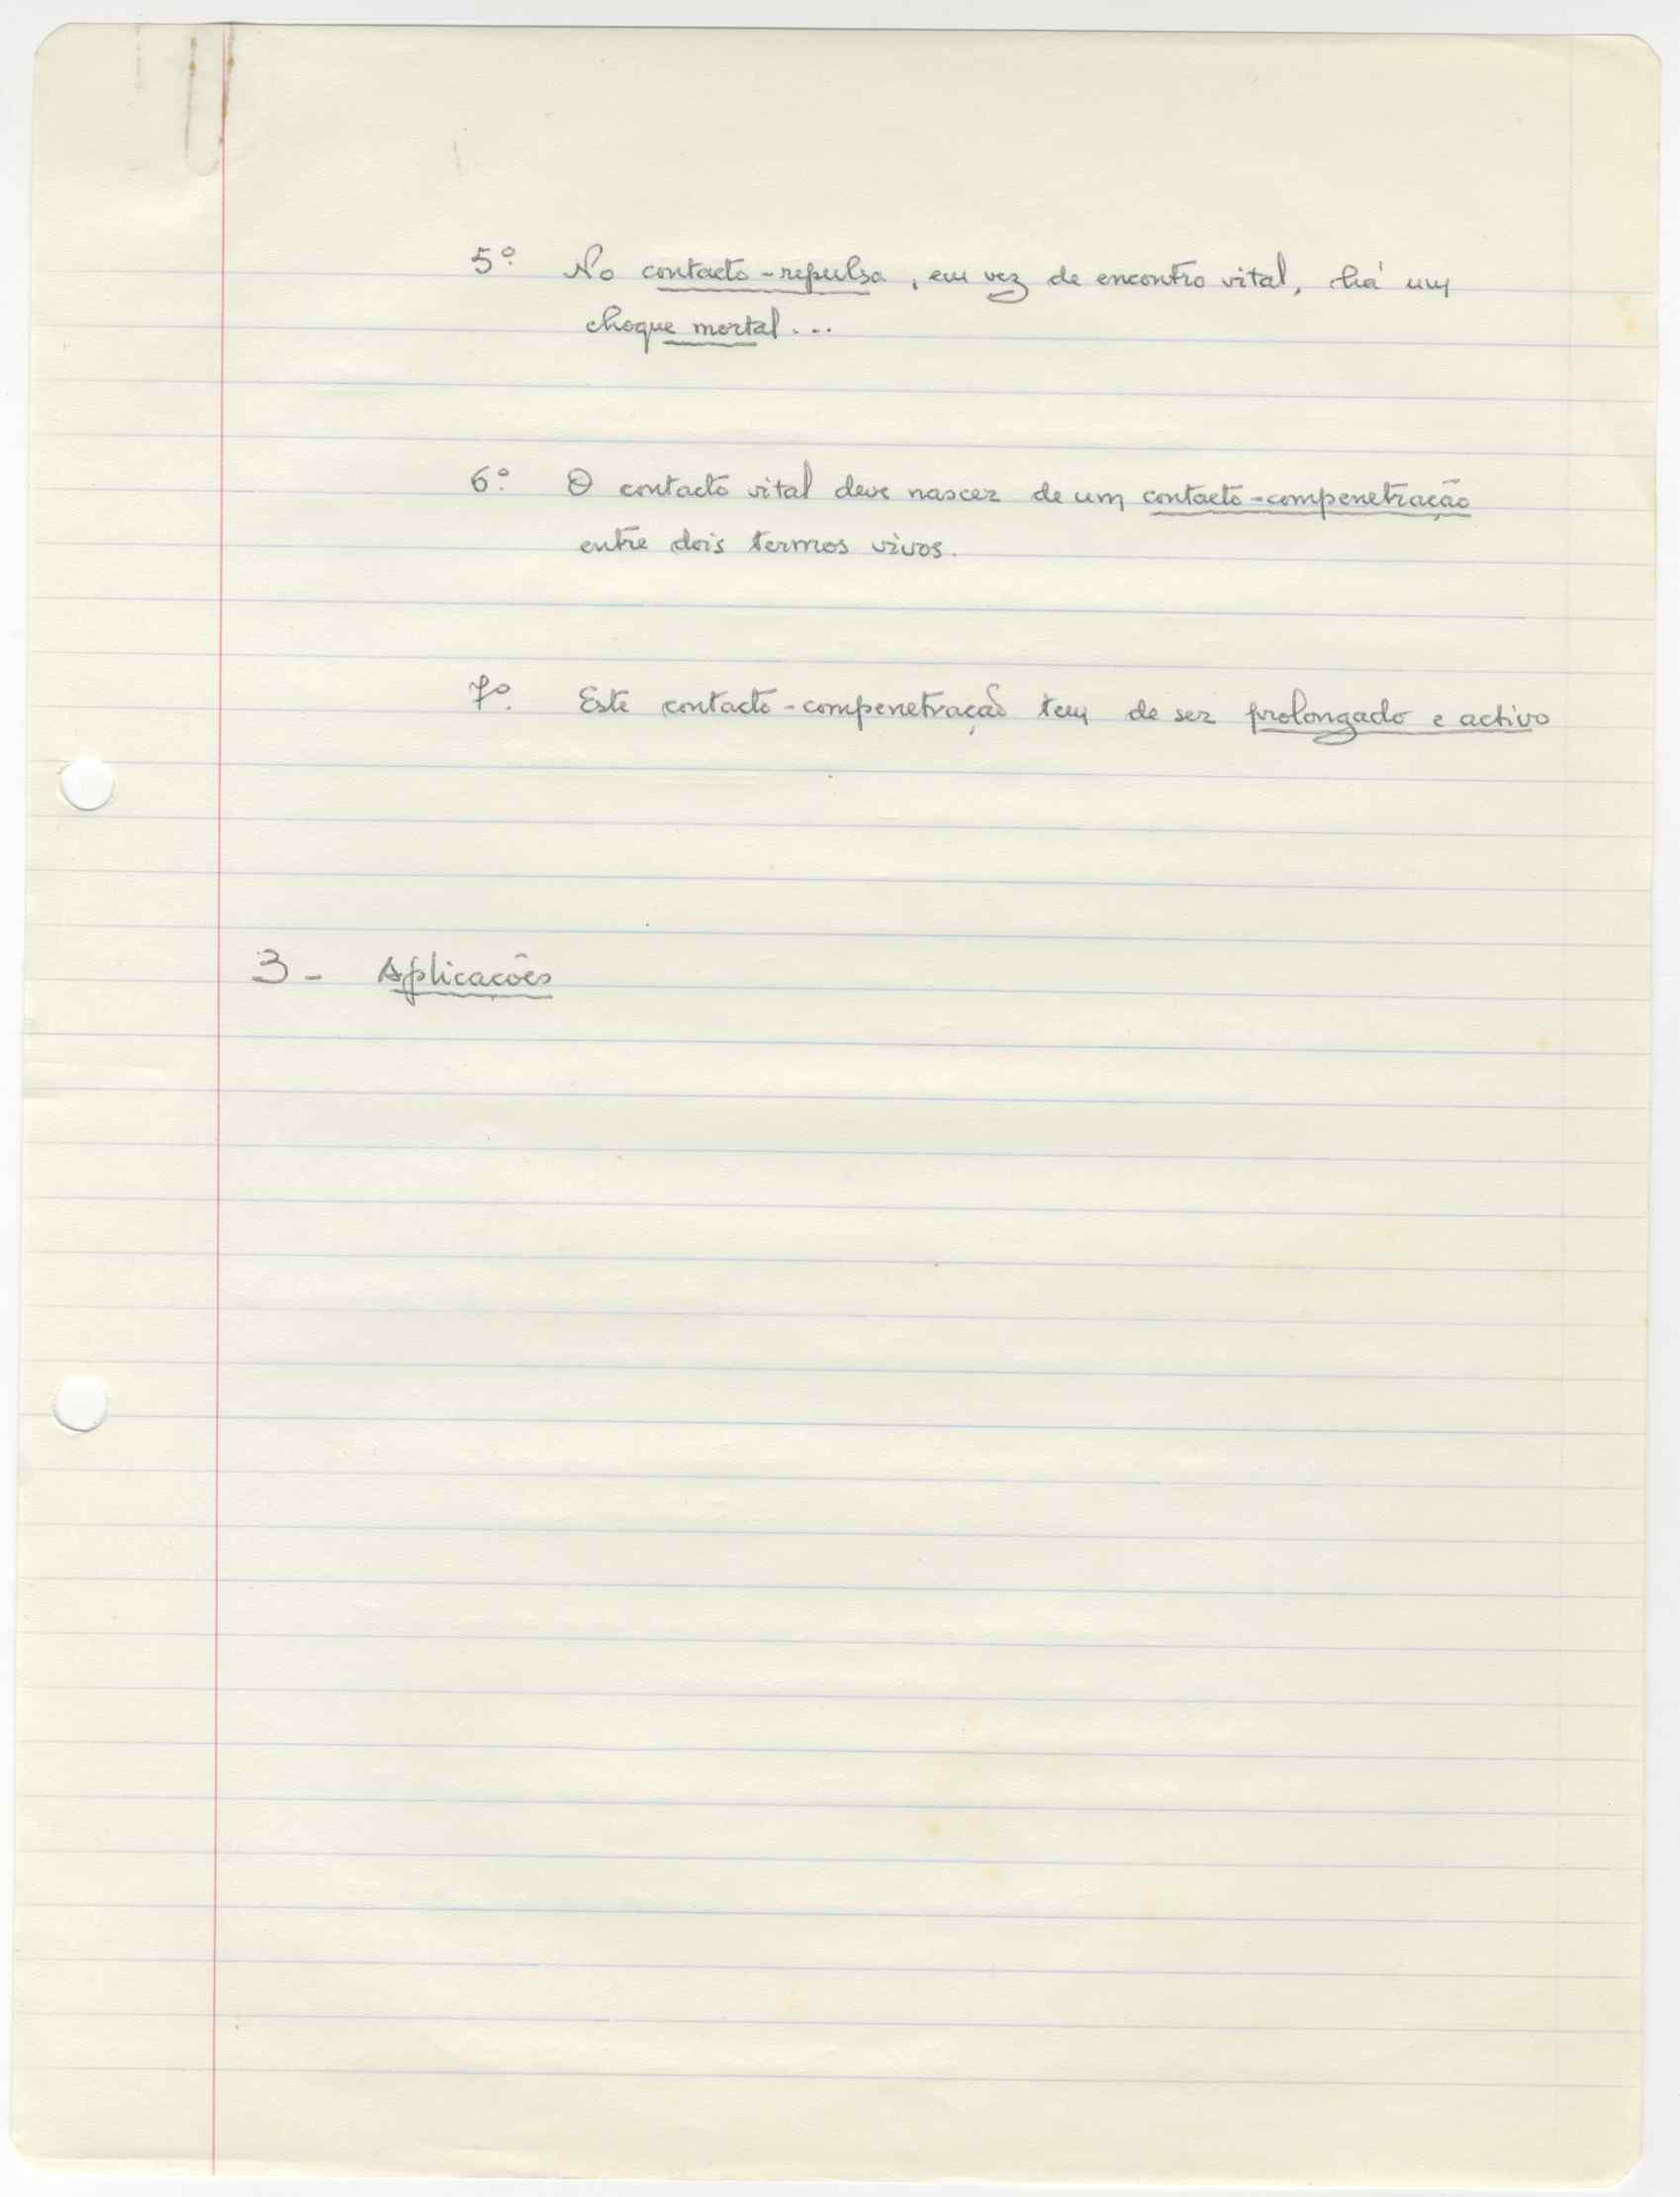 5º. No contacto-repulsa, em vez de encontro vital, há um
choque mortal...
6º. O contacto vital deve nascer de um contacto-compenetração
entre dois termos vivos.
7º. Este contacto-compenetração tem de ser prolongado e activo
3 - Aplicações